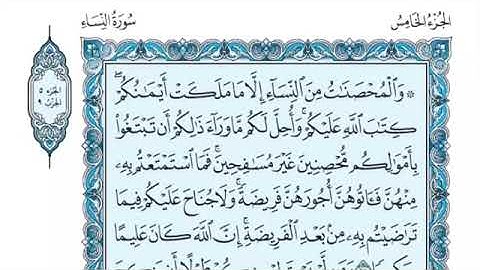 الجزء الخامس
سورة النساء
الجزء ٥
الحزب ٩
۞ وَالْمُحْصَنَاتُ مِنَ النِّسَاءِ إِلَّا مَا مَلَكَتْ أَيْمَانُكُمْ ۖ
كِتَابَ اللَّهِ عَلَيْكُمْ ۚ وَأُحِلَّ لَكُم مَّا وَرَاءَ ذَٰلِكُمْ أَن تَبْتَغُوا
بِأَمْوَالِكُم مُّحْصِنِينَ غَيْرَ مُسَافِحِينَ ۚ فَمَا اسْتَمْتَعْتُم بِهِ
مِنْهُنَّ فَآتُوهُنَّ أُجُورَهُنَّ فَرِيضَةً ۚ وَلَا جُنَاحَ عَلَيْكُمْ فِيمَا
تَرَاضَيْتُم بِهِ مِن بَعْدِ الْفَرِيضَةِ ۚ إِنَّ اللَّهَ كَانَ عَلِيمًا